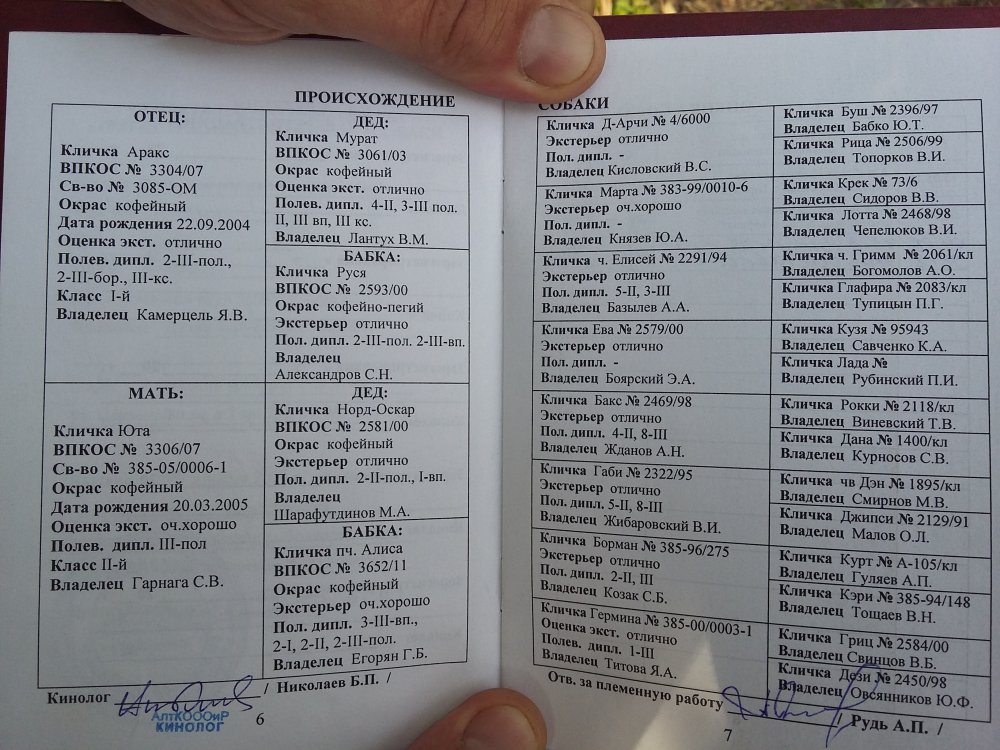 ПРОИСХОЖДЕНИЕ
ОТЕЦ:
Кличка Аракс
ВПКОС № 3304/07
Св-во № 3085-ОМ
Окрас кофейный
Дата рождения 22.09.2004
Оценка экст. отлично
Полев. дипл. 2-III-пол.,
2-III-бор., III-кс.
Класс I-й
Владелец Камерцель Я.В.
МАТЬ:
Кличка Юта
ВПКОС № 3306/07
Св-во № 385-05/0006-1
Окрас кофейный
Дата рождения 20.03.2005
Оценка экст. оч.хорошо
Полев. дипл. III-пол
Класс II-й
Владелец Гарнага С.В.
ДЕД:
Кличка Мурат
ВПКОС № 3061/03
Окрас кофейный
Оценка экст. отлично
Полев. дипл. 4-II, 3-III пол.
II, III вп, III кс.
Владелец Лантух В.М.
БАБКА:
Кличка Руся
ВПКОС № 2593/00
Окрас кофейно-пегий
Экстерьер отлично
Пол. дипл. 2-III-пол. 2-III-вп.
Владелец
Александров С.Н.
ДЕД:
Кличка Норд-Оскар
ВПКОС № 2581/00
Окрас кофейный
Экстерьер отлично
Пол. дипл. 2-II-пол., I-вп.
Владелец
Шарафутдинов М.А.
БАБКА:
Кличка пч. Алиса
ВПКОС № 3652/11
Окрас кофейный
Экстерьер оч.хорошо
Пол. дипл. 3-III-вп.,
2-I, 2-II, 2-III-пол.
Владелец Егорян Г.Б.
Кинолог / Николаев Б.П. /
АлтКОООиР
КИНОЛОГ
6
СОБАКИ
Кличка Д-Арчи № 4/6000
Экстерьер отлично
Пол. дипл. -
Владелец Кисловский В.С.
Кличка Марта № 383-99/0010-6
Экстерьер оч.хорошо
Пол. дипл. -
Владелец Князев Ю.А.
Кличка ч. Елисей № 2291/94
Экстерьер отлично
Пол. дипл. 5-II, 3-III
Владелец Базылев А.А.
Кличка Ева № 2579/00
Экстерьер отлично
Пол. дипл. -
Владелец Боярский Э.А.
Кличка Бакс № 2469/98
Экстерьер отлично
Пол. дипл. 4-II, 8-III
Владелец Жданов А.Н.
Кличка Габи № 2322/95
Экстерьер отлично
Пол. дипл. 5-II, 8-III
Владелец Жибаровский В.И.
Кличка Борман № 385-96/275
Экстерьер отлично
Пол. дипл. 2-II, III
Владелец Козак С.Б.
Кличка Гермина № 385-00/0003-1
Оценка экст. отлично
Полев. дипл. 1-III
Владелец Титова Я.А.
Кличка Буш № 2396/97
Владелец Бабко Ю.Т.
Кличка Рица № 2506/99
Владелец Топорков В.И.
Кличка Крек № 73/6
Владелец Сидоров В.В.
Кличка Лотта № 2468/98
Владелец Чепелюков В.И.
Кличка ч. Гримм № 2061/кл
Владелец Богомолов А.О.
Кличка Глафира № 2083/кл
Владелец Тупицын П.Г.
Кличка Кузя № 95943
Владелец Савченко К.А.
Кличка Лада №
Владелец Рубинский П.И.
Кличка Рокки № 2118/кл
Владелец Виневский Т.В.
Кличка Дана № 1400/кл
Владелец Курносов С.В.
Кличка чв Дэн № 1895/кл
Владелец Смирнов М.В.
Кличка Джипси № 2129/91
Владелец Малов О.Л.
Кличка Курт № А-105/кл
Владелец Гуляев А.П.
Кличка Кэри № 385-94/148
Владелец Тощаев В.Н.
Кличка Гриц № 2584/00
Владелец Свинцов В.Б.
Кличка Дези № 2450/98
Владелец Овсянников Ю.Ф.
Отв. за племенную работу / Рудь А.П. /
7